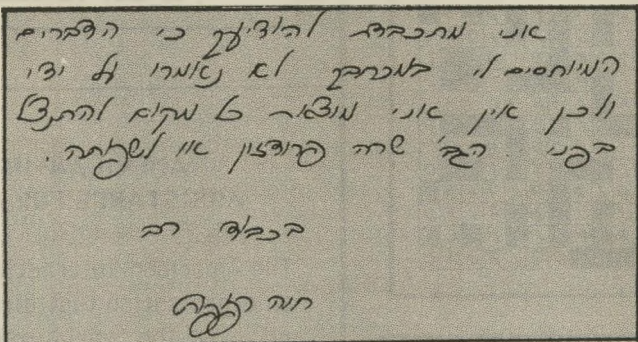 אני מתכבדת להודיעך כי הדברים
המיוחסים לי במכתבך לא נאמרו על ידי
ולכן אין אני מוצאת כל מקום להתנצל
בפני הגב' שרה פרודזון או לשפותה.
בכבוד רב
חנה